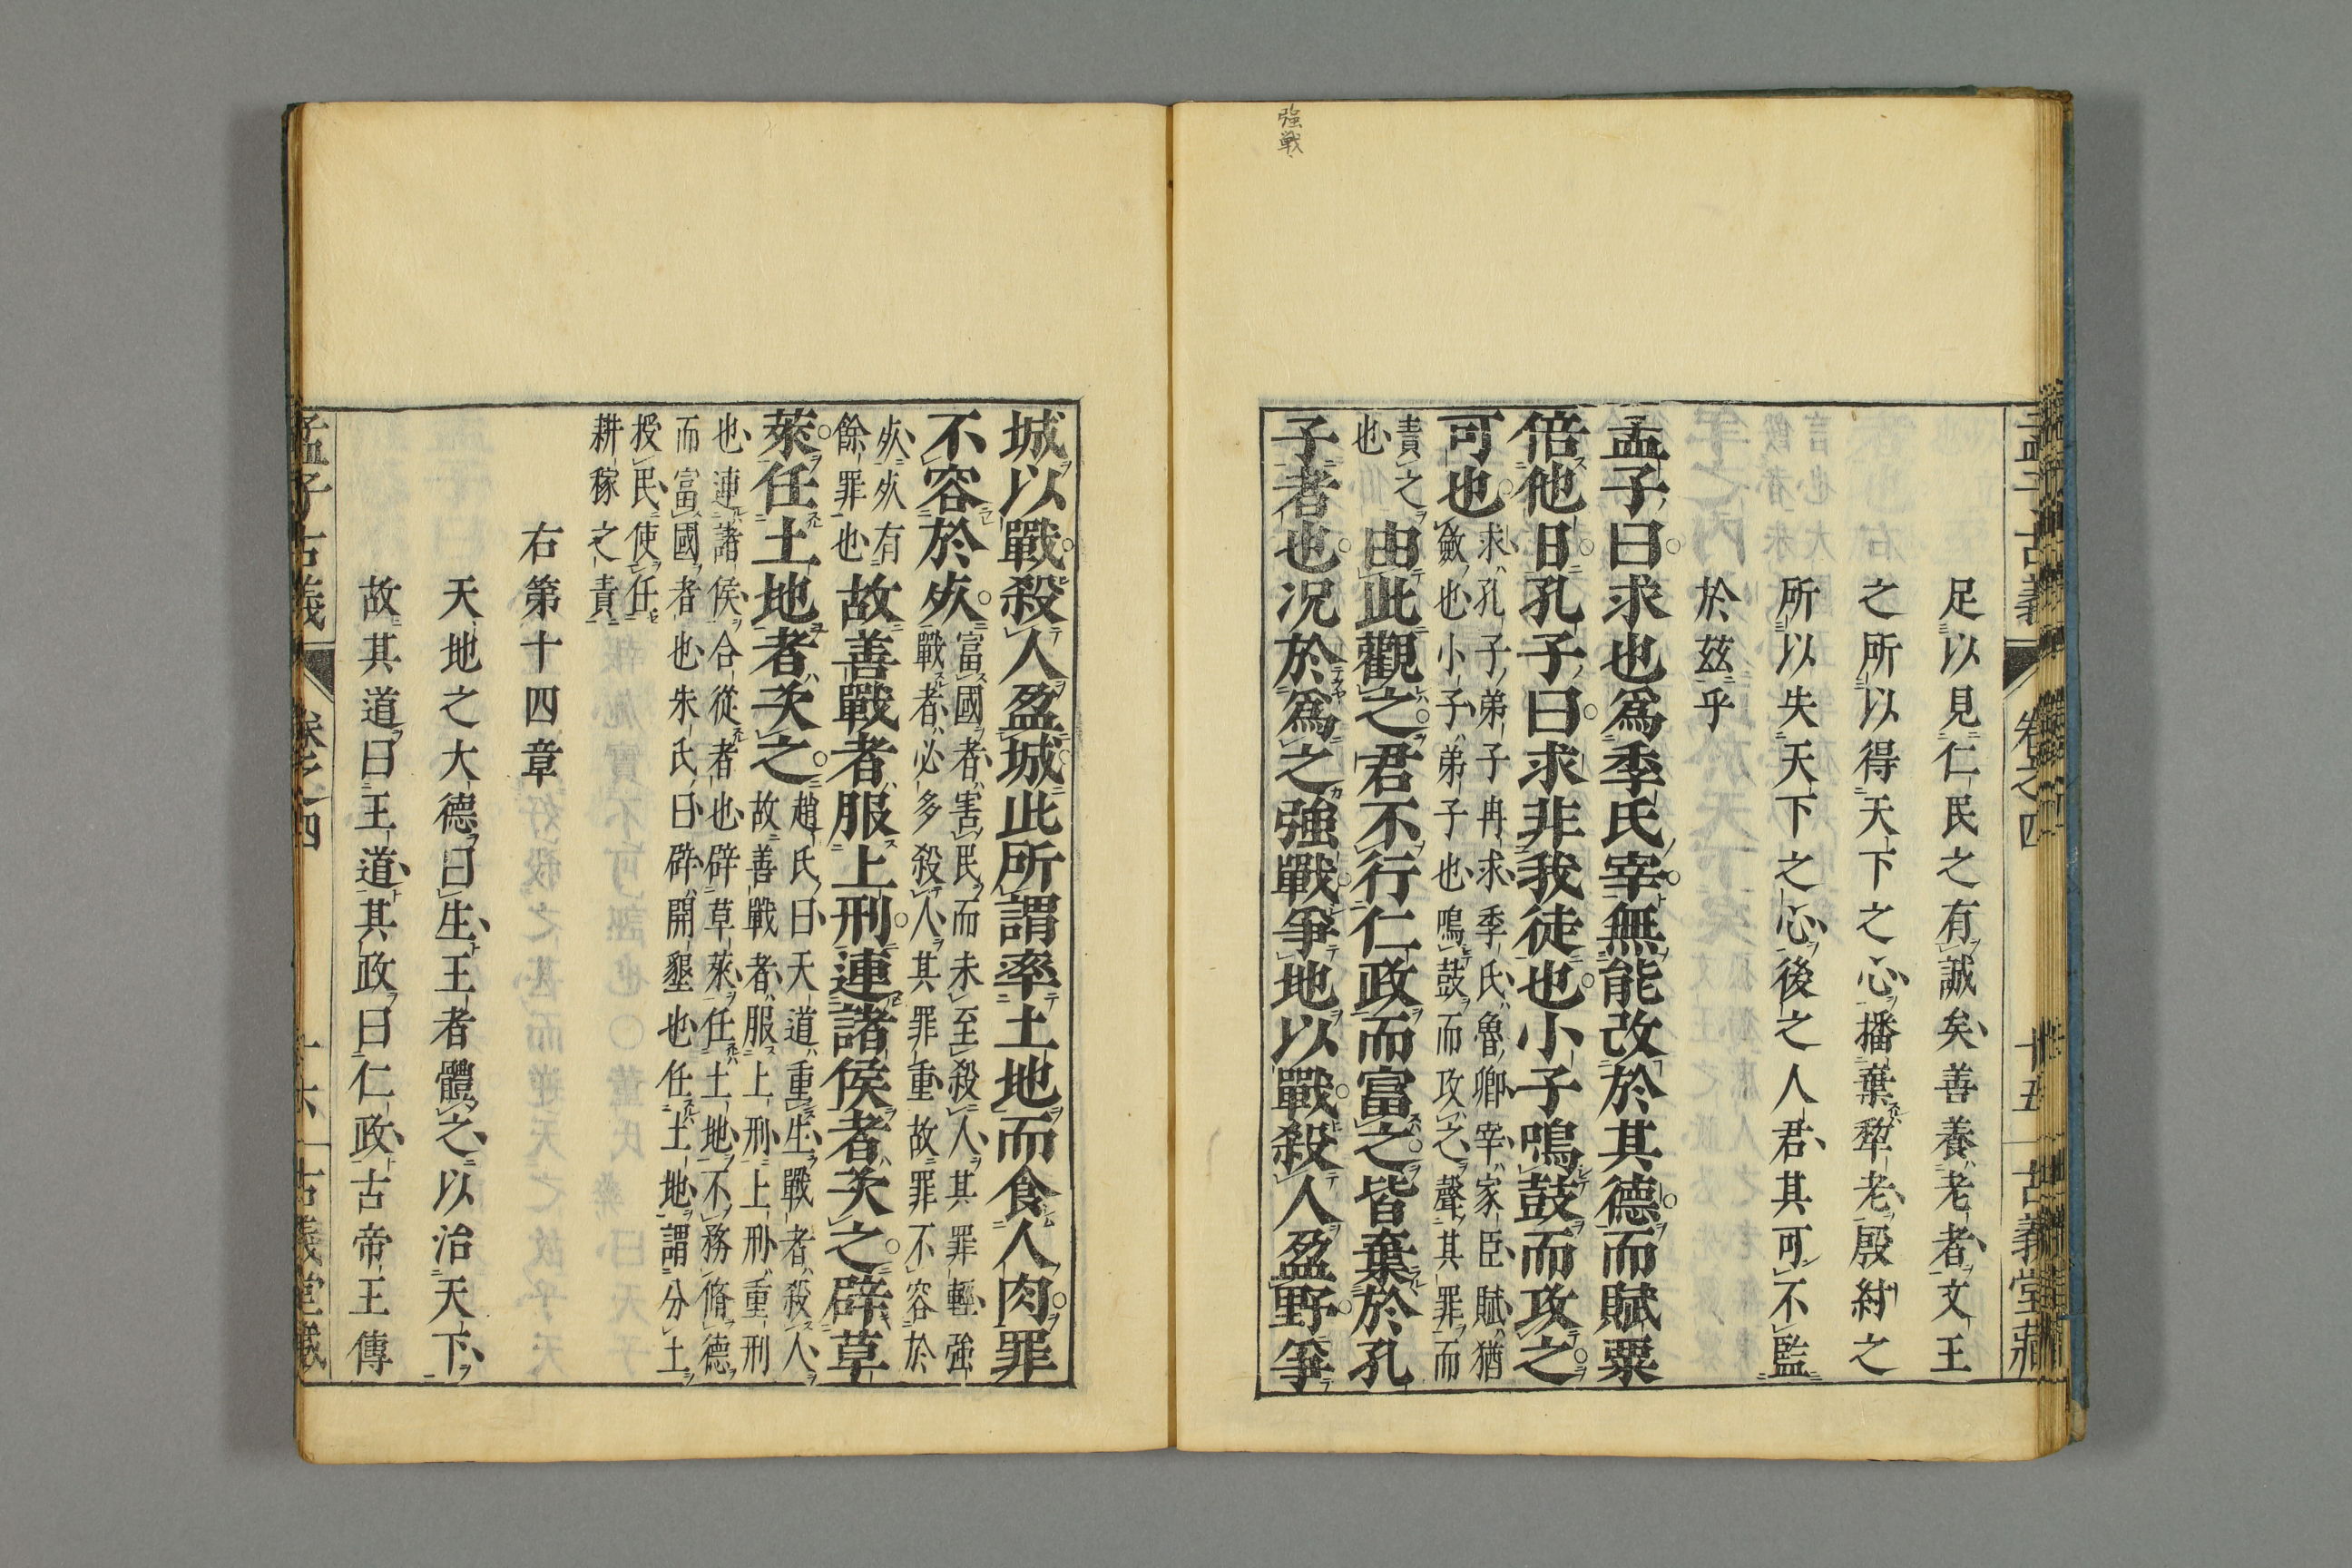 強戰
足以見仁民之有誠矣善養老者文王
之所以得天下之心播棄犂老殷紂之
所以失天下之心後之人君其可不監
於玆乎
孟子曰求也爲季氏宰無能改於其德而賦粟
倍他日孔子曰求非我徒也小子鳴鼓而攻之
可也求孔子弟子冉求季氏魯卿宰家臣賦猶
斂也小子弟子也鳴鼓而攻之聲其罪而
責之
也由此觀之君不行仁政而富之皆棄於孔
子者也況於爲之強戰爭地以戰殺人盈野爭
孟子古義 卷之四 十五 古義堂藏
城以戰殺人盈城此所謂率土地而食人肉罪
不容於死富國者害民而未至殺人其罪輕強
戰者必多殺人其罪重故罪不容於
死死有
餘罪也故善戰者服上刑連諸侯者次之辟草
萊任土地者次之趙氏曰天道重生戰者殺人
故善戰者服上刑上刑重刑
也連諸侯合從者也辟草萊任土地不務脩德
而富國者也朱氏曰辟開墾也任土地謂分土
授民使任
耕稼之責
右第十四章
天地之大德曰生王者體之以治天下
故其道曰王道其政曰仁政古帝王傳
孟子古義 卷之四 十六 古義堂藏